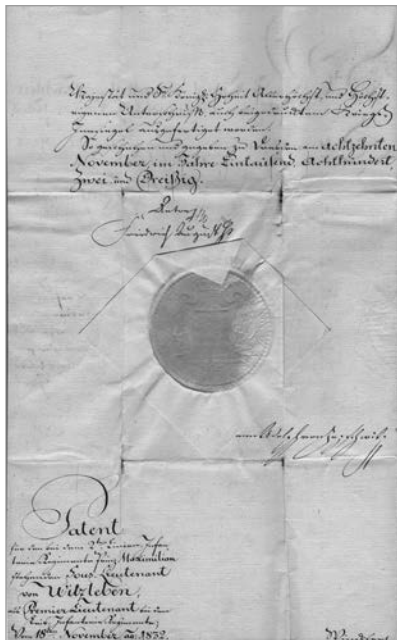 Majestät und Sr. Königl. Hoheit Allerhöchst- und Höchst-
eigenen Unterschrift, auch beigedrucktem Kriegs-
Innsiegel ausgefertiget worden.
So geschehen und gegeben zu Dresden am Achtzehnten
November, im Jahre Eintausend, Achthundert,
Zwei und Dreißig.
Anton
Friedrich August
Patent
für den bei dem 2ten Linien-Infan-
terie-Regimente Prinz Maximilian
stehenden Sous-Lieutenant
von Witzleben,
als Premier-Lieutenant bei dem
Leib-Infanterie-Regimente;
Vom 18ten November au. 1832.